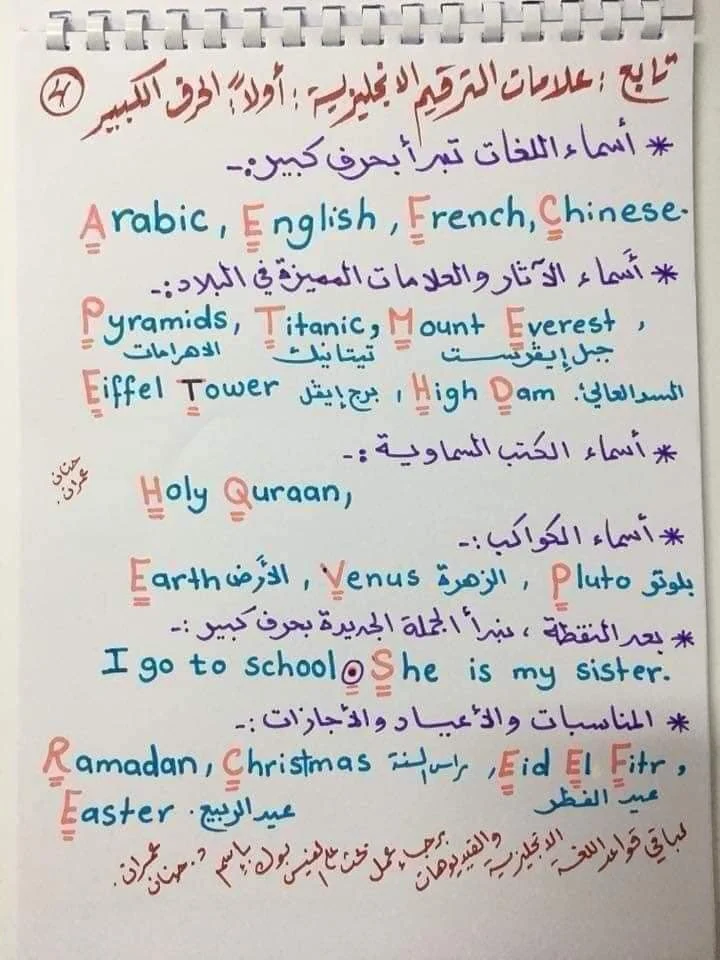 تابع : علامات الترقيم الانجليزية : أولاً : الحرف الكبير ٤
* أسماء اللغات تبدأ بحرف كبير :-
Arabic, English, French, Chinese.
* أسماء الآثار والعلامات المميزة في البلاد :-
Pyramids, Titanic, Mount Everest ,
الاهرامات تيتانيك جبل إيفرست
Eiffel Tower برج إيفل , High Dam السد العالي .
* أسماء الكتب السماوية :-
حنان عمران .
Holy Quraan,
* أسماء الكواكب :-
Earth الأرض , Venus الزهرة , Pluto بلوتو
* بعد النقطة ، نبدأ الجملة الجديدة بحرف كبير :-
I go to school. She is my sister.
* المناسبات والأعياد والأجازات :-
Ramadan, Christmas راس السنة , Eid El Fitr ,
عيد الفطر
Easter عيد الربيع .
لباقي قواعد اللغة الانجليزية والفيديوهات برجاء عمل بحث ع الفيس بوك بإسم د. حنان عمران .